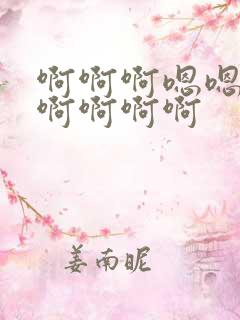 啊啊啊嗯嗯
啊啊啊啊
姜南昵